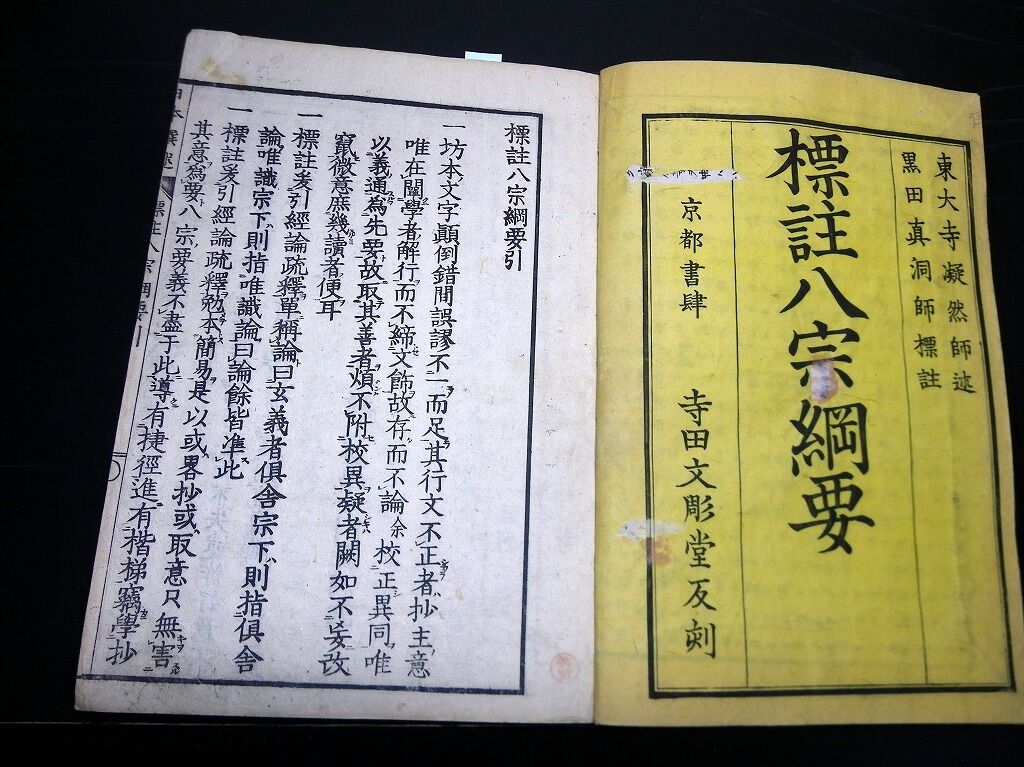 東大寺凝然師述
黒田真洞師標註
標註八宗綱要
京都書肆　寺田文彫堂反刻
標註八宗綱要引
一坊本文字顛倒錯間誤謬不一而足其行文不正者抄主意
唯在闡學者解行而不締文飾故存而不論余校正異同唯
以義通為先要故取其善者煩不附校異疑者闕如不妄改
竄微意庶幾讀者便耳
一標註爰引經論疏釋單稱論曰玄義者俱舍宗下則指俱舍
論唯識宗下則指唯識論曰論餘皆準此
一標註爰引經論疏釋勉本簡易是以或畧抄或取意只無害
其意為要八宗要義不盡于此導有捷徑進有楷梯竊學抄
日本撰述　標註八宗綱要引